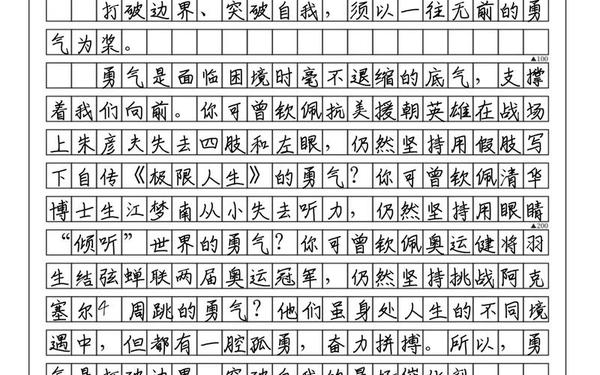 打破边界、突破自我，须以一往无前的勇
气为桨。
▲100
勇气是面临困境时毫不退缩的底气，支撑
着我们向前。你可曾钦佩抗美援朝英雄在战场
上朱彦夫失去四肢和左眼，仍然坚持用假肢写
下自传《极限人生》的勇气？你可曾钦佩清华
博士生江梦南从小失去听力，仍然坚持用眼睛
▲200
“倾听”世界的勇气？你可曾钦佩奥运健将羽
生结弦蝉联两届奥运冠军，仍然坚持挑战阿克
塞尔4周跳的勇气？他们虽身处人生的不同境
遇中，但都有一腔孤勇，奋力拼搏。所以，勇
气是打破边界、突破自我的